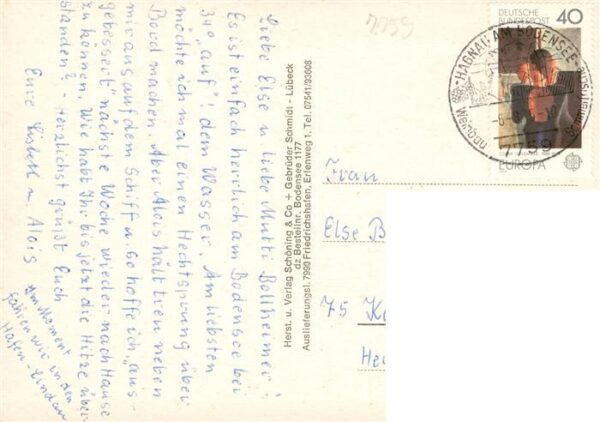 Liebe Else u. liebe Mutti Bollheimer!
Es ist einfach herrlich am Bodensee bei
34° "auf" dem Wasser. Am liebsten
möchte ich mal einen Hechtsprung über
Bord machen. Aber Alois hält treu neben
mir aus auf dem Schiff u. so hoffe ich, "aus-
gebessert" nächste Woche wieder nach Hause
zu können. Wie habt Ihr bis jetzt die Hitze über-
standen? - Herzlichst grüßt Euch
Eure Liesbeth u. Alois
Im Moment
fahren wir in den
Hafen-Lindau
Herst. u. Verlag Schöning & Co + Gebrüder Schmidt - Lübeck
dz Bestellnr. Bodensee 1177
Auslieferungsl. 7990 Friedrichshafen, Erlenweg 1, Tel. 07541/93608
7759
DEUTSCHE
BUNDESPOST
40
EUROPA
HAGNAU AM BODENSEE
7759
Frau
Else B
75 K